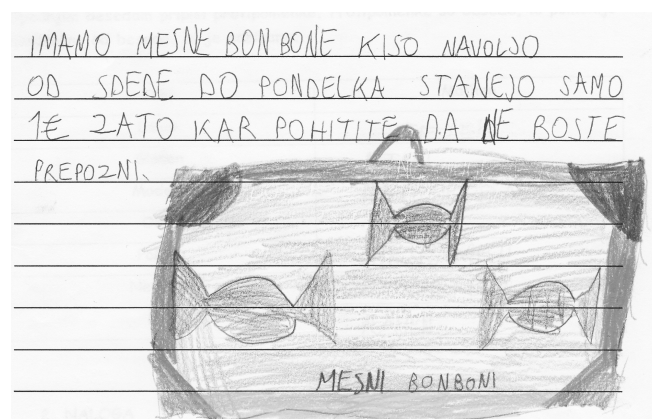 IMAMO MESNE BONBONE KISO NAVOLJO
OD SDEDE DO PONDELKA STANEJO SAMO
1€ ZATO KAR POHITITE DA NE BOSTE
PREPOZNI.
MESNI BONBONI